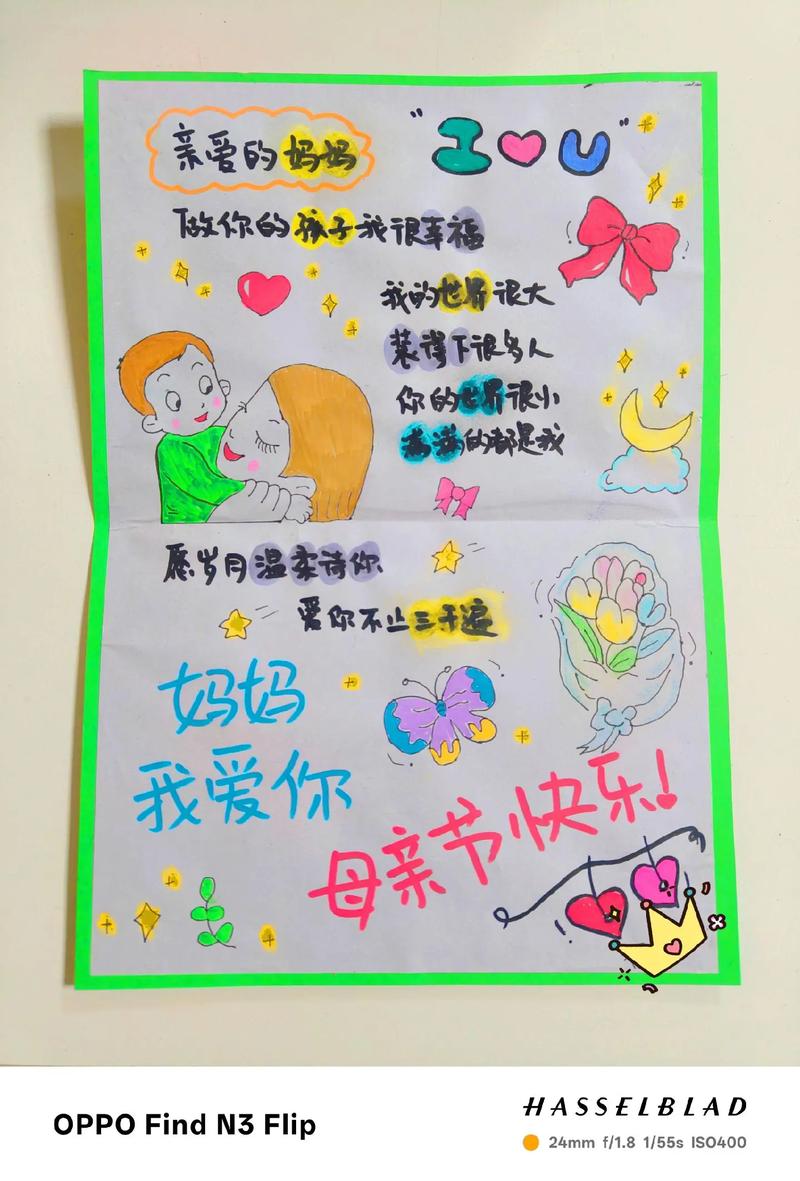 亲爱的妈妈
"I U"
做你的孩子我很幸福
我的世界很大
装得下很多人
你的世界很小
满满的都是我
愿岁月温柔待你
爱你不止三千遍
妈妈
我爱你
母亲节快乐!
OPPO Find N3 Flip
HASSELBLAD
24mm f/1.8 1/55s ISO400